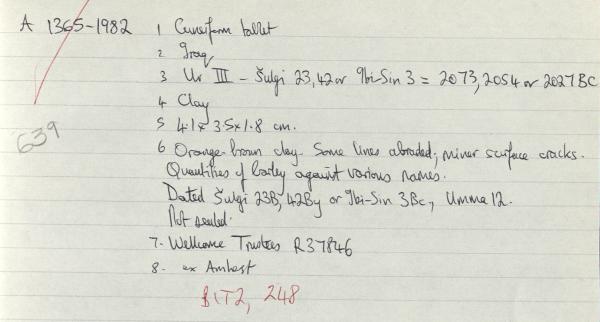 A 1365-1982 1 Cuneiform tablet
2 Iraq
3 Ur III - Šulgi 23, 42 or Ibi-Sin 3 = 2073, 2054 or 2027 BC
4 Clay
5 4.1 x 3.5 x 1.8 cm.
6 Orange-brown clay. Some lines abraded; minor surface cracks.
639
Quantities of barley against various names.
Dated Šulgi 23B, 42By or Ibi-Sin 3Bc, Umma 12.
Not sealed.
7. Wellcome Trustees R37846
8. ex Amherst
BIT2, 248